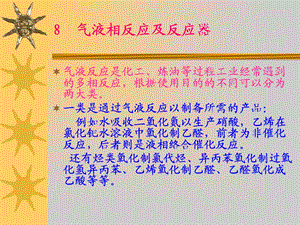 8 气液相反应及反应器
气液反应是化工、炼油等过程工业经常遇到
的多相反应，根据使用目的的不同可以分为
两大类。
一类是通过气液反应以制备所需的产品：
例如水吸收二氧化氮以生产硝酸，乙烯在
氯化钯水溶液中氧化制乙醛，前者为非催化
反应，后者则是液相络合催化反应。
还有烃类氯化制氯代烃、异丙苯氧化制过氧
化氢异丙苯、乙烯氧化制乙醛、乙醛氧化成
乙酸等等。